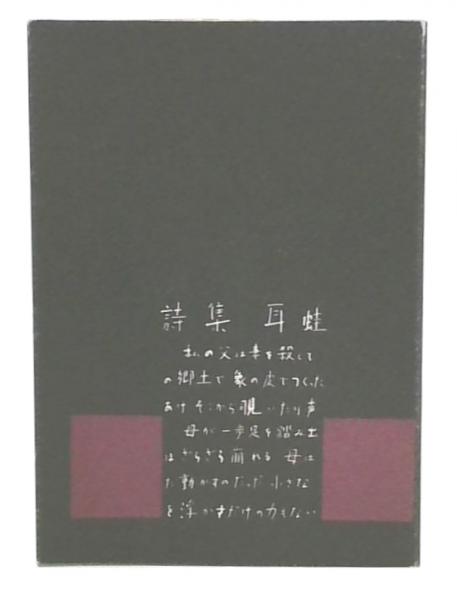 詩集 耳蛙
私の父は妻を殺して
の郷土で象の皮でつくった
あけそこから覗いたり声
母が一歩足を踏み出
はざらざら崩れる 母は
た動かすのだった 小さな
を浮かすだけの力もない